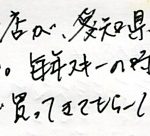 店が、愛知県
。毎年スキーの時
買ってきてもらっ